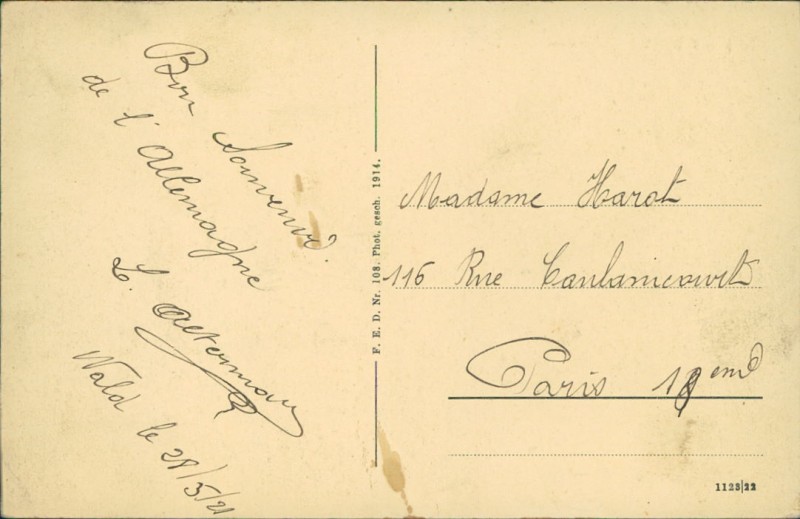 Bon Souvenir
de l'Allemagne
L.
Wald le 28/5/21
F. E. D. Nr. 108. Phot. gesch. 1914.
Madame Harat
116 Rue Caulaincourt
Paris 18eme
1123|22